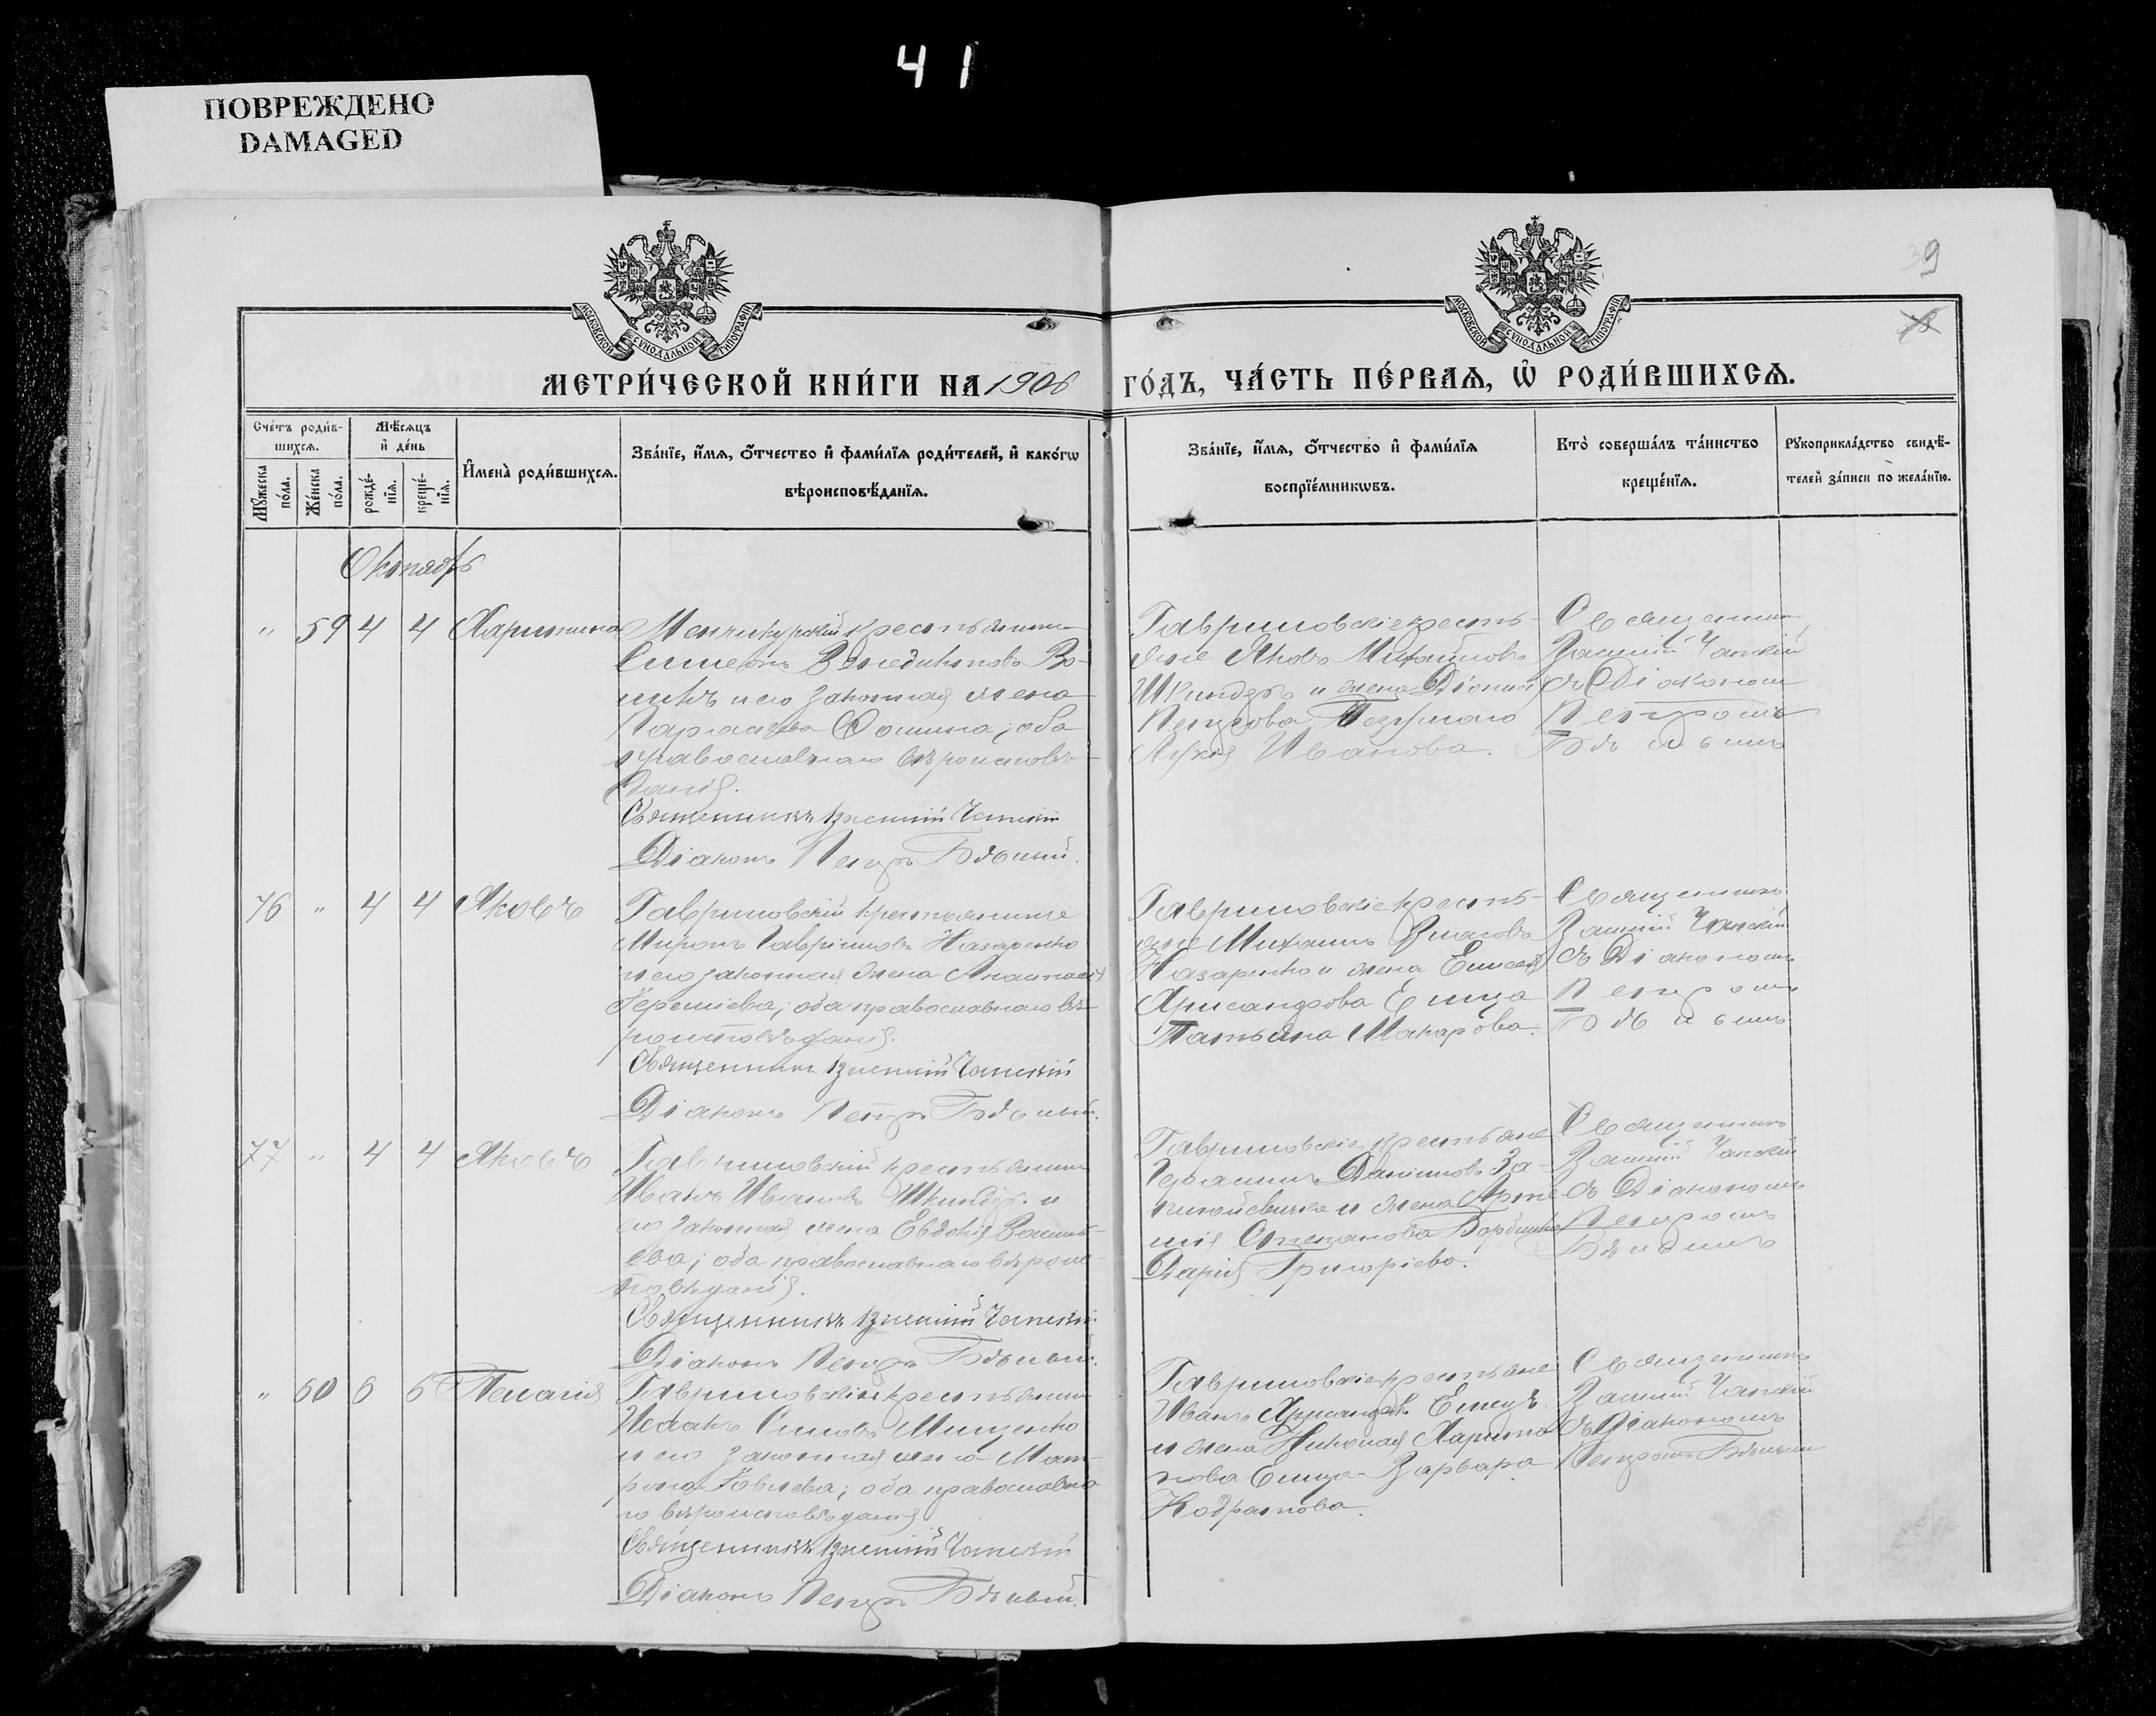 41
ПОВРЕЖДЕНО
DAMAGED
39
МОСКОВСКОЙ СѴНОДАЛЬНОЙ ТИПОГРАФІИ
МОСКОВСКОЙ СѴНОДАЛЬНОЙ ТИПОГРАФІИ
МЕТРИ́ЧЕСКОЙ КНИ́ГИ НА 1906 ГО́ДЪ, ЧА́СТЬ ПЕ́РВАѦ, Ѡ҆ РОДИ́ВШИХСѦ.
Сче́тъ роди́в-
шихсѧ.
Мꙋ́жеска по́ла.
Же́нска по́ла.
Мѣ́сѧцъ
и҆ де́нь
рожде́-
нїѧ.
креще́-
нїѧ.
И҆мена̀ роди́вшихсѧ.
Зва́нїе, и҆́мѧ, ѻ҆́тчество и҆ фами́лїѧ роди́телей, и҆ како́гѡ
вѣроисповѣ́данїѧ.
Зва́нїе, и҆́мѧ, ѻ҆́тчество и҆ фами́лїѧ
воспрїе́мникѡвъ.
Кто̀ соверша́лъ та́инство
креще́нїѧ.
Рꙋкоприкла́дство свидѣ́-
телей за́писи по жела́нїю.
Октябрь
" 59 4 4 Харитина
крестьянинъ
Симеонъ Венедиктовъ Во-
и его законная жена
Фомина; оба
православнаго вѣроисповѣ-
данія.
Священникъ Василій Чапскій
Діаконъ Петръ
Гавриловскіе кресть-
яне Яковъ Михайловъ
Шкиндеръ и жена
Петрова
Лукія Иванова.
Священникъ
Василій Чапскій
съ Діакономъ
Петромъ
76 " 4 4 Яковъ
Гавриловскій крестьянинъ
Миронъ Гавріиловъ Назаренко
и его законная жена Анастасія
Іереміева; оба православнаго вѣ-
роисповѣданія.
Священникъ Василій Чапскій
Діаконъ Петръ
Гавриловскіе кресть-
яне Михаилъ Власовъ
Назаренко и жена
Хрисанфова Емца
Татьяна Макарова.
Священникъ
Василій Чапскій
съ Діакономъ
Петромъ
77 " 4 4 Яковъ
Гавриловскій крестьянинъ
Иванъ Ивановъ Шкиндеръ и
его законная жена Евдокія Василь-
ева; оба православнаго вѣроис-
повѣданія.
Священникъ Василій Чапскій
Діаконъ Петръ
Гавриловскіе крестьяне
Герасимъ Даніиловъ За-
и жена Арте-
мія Степанова
Дарія Григоріева.
Священникъ
Василій Чапскій
съ Діакономъ
Петромъ
" 60 6 6 Пелагія
Гавриловскій крестьянинъ
Исаакъ Мищенко
и его законная жена Мат-
рона Іовлева; оба православна-
го вѣроисповѣданія
Священникъ Василій Чапскій
Діаконъ Петръ
Гавриловскіе крестьяне
Иванъ Хрисанфовъ Емецъ
и жена Николая Харито-
нова Емца Варвара
Кодратова.
Священникъ
Василій Чапскій
съ Діакономъ
Петромъ